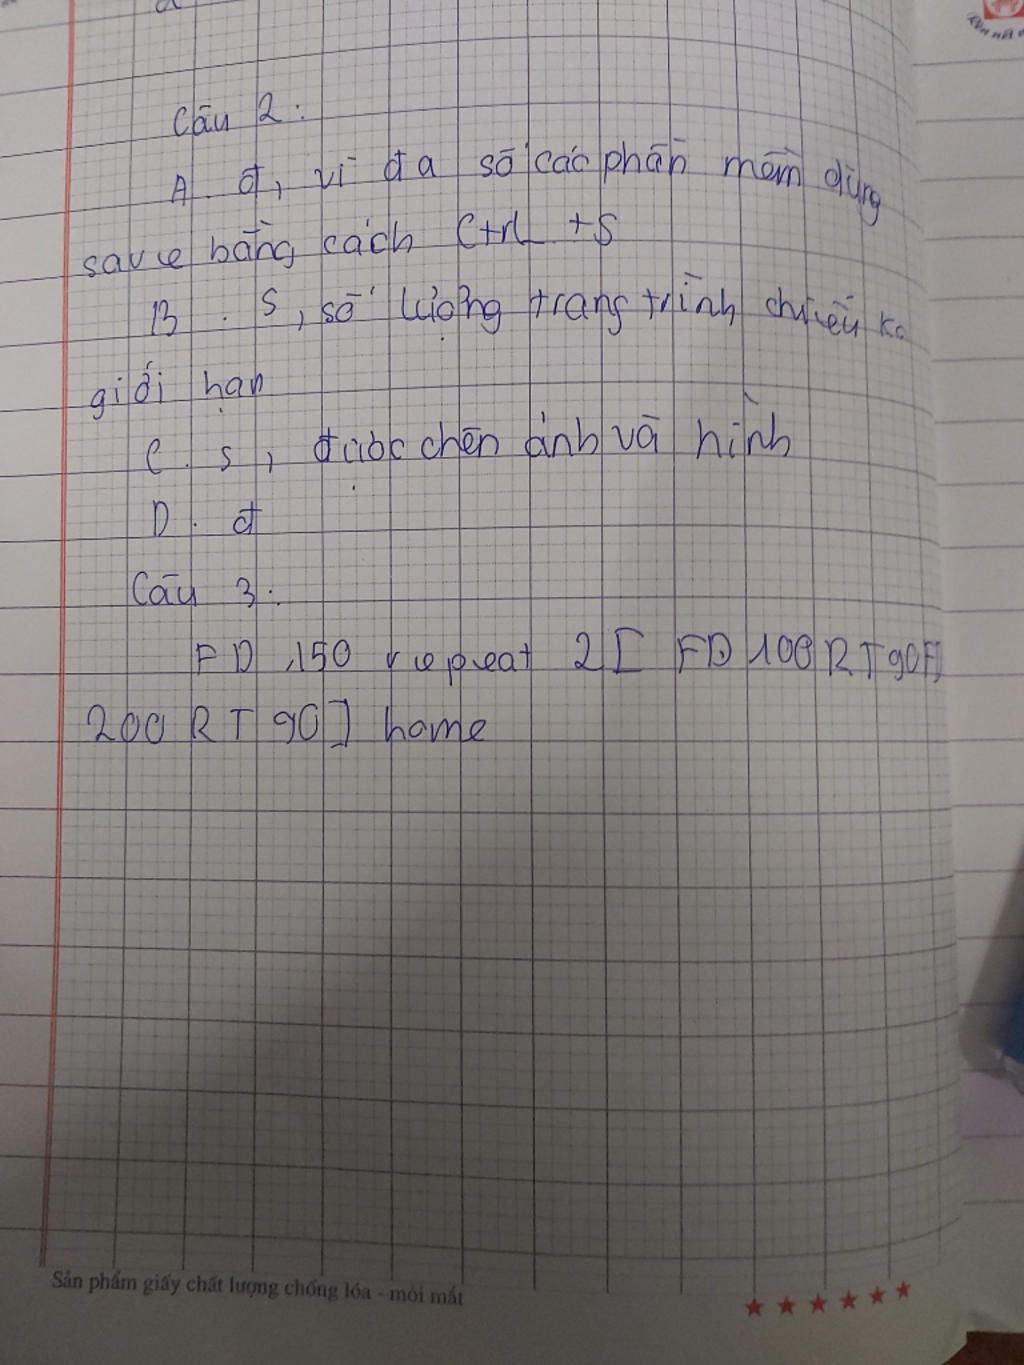 Câu 2:
A. đ, vì đa số các phần mềm dùng
save bằng cách Ctrl +S
B. S, số lượng trang trình chiếu ko
giới hạn
C. s, được chèn ảnh và hình
D. đ
Câu 3:
FD 150 repeat 2[ FD 100 RT 90 FD
200 RT 90] home
Sản phẩm giấy chất lượng chống lóa - mỏi mắt